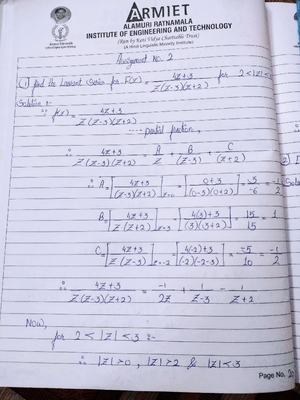 ARMIET
ALAMURI RATNAMALA
INSTITUTE OF ENGINEERING AND TECHNOLOGY
(Run by Koti Vidya Charitable Trust)
(A Hindi Linguistic Minority Institute)
Assignment No. 2
① find the Laurent Series for F(z) = 4z+3 / z(z-3)(z+2) for 2<|z|<
Solution :-
∵ f(z) = 4z+3 / z(z-3)(z+2)
partial fraction,
∴ 4z+3 / z(z-3)(z+2) = A/z + B/(z-3) + C/(z+2)
∴ A = [4z+3 / (z-3)(z+2)] z=0 = [0+3 / (0-3)(0+2)] = 3/-6 = -1/2
B = [4z+3 / z(z+2)] z=3 = [4(3)+3 / (3)(3+2)] = 15/15 = 1
C = [4z+3 / z(z-3)] z=-2 = [4(-2)+3 / (-2)(-2-3)] = -5/10 = -1/2
∴ 4z+3 / z(z-3)(z+2) = -1/2z + 1/z-3 - 1/z+2
Now,
for 2 < |z| < 3 :-
∴ |z|>0, |z|>2 & |z|<3
Page No.